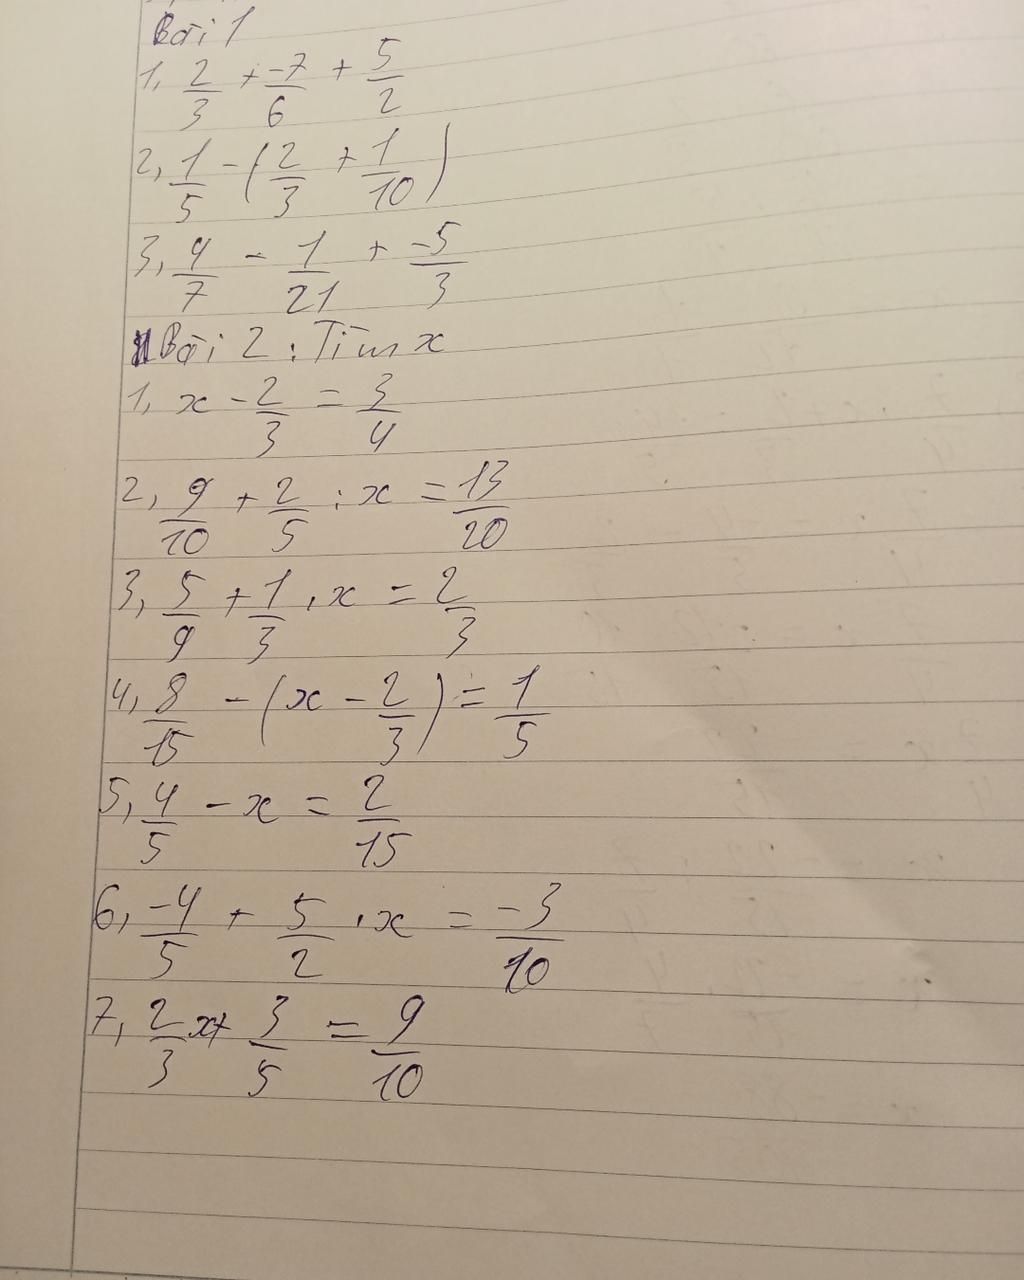 Bài 1
1, 2/3 + -7/6 + 5/2
2, 1/5 - (2/3 + 1/10)
3, 4/7 - 1/21 + -5/3
Bài 2 : Tìm x
1, x - 2/3 = 3/4
2, 9/10 + 2/5 : x = 13/20
3, 5/9 + 1/3 . x = 2/3
4, 8/15 - (x - 2/3) = 1/5
5, 4/5 - x = 2/15
6, -4/5 + 5/2 . x = -3/10
7, 2/3 x + 3/5 = 9/10